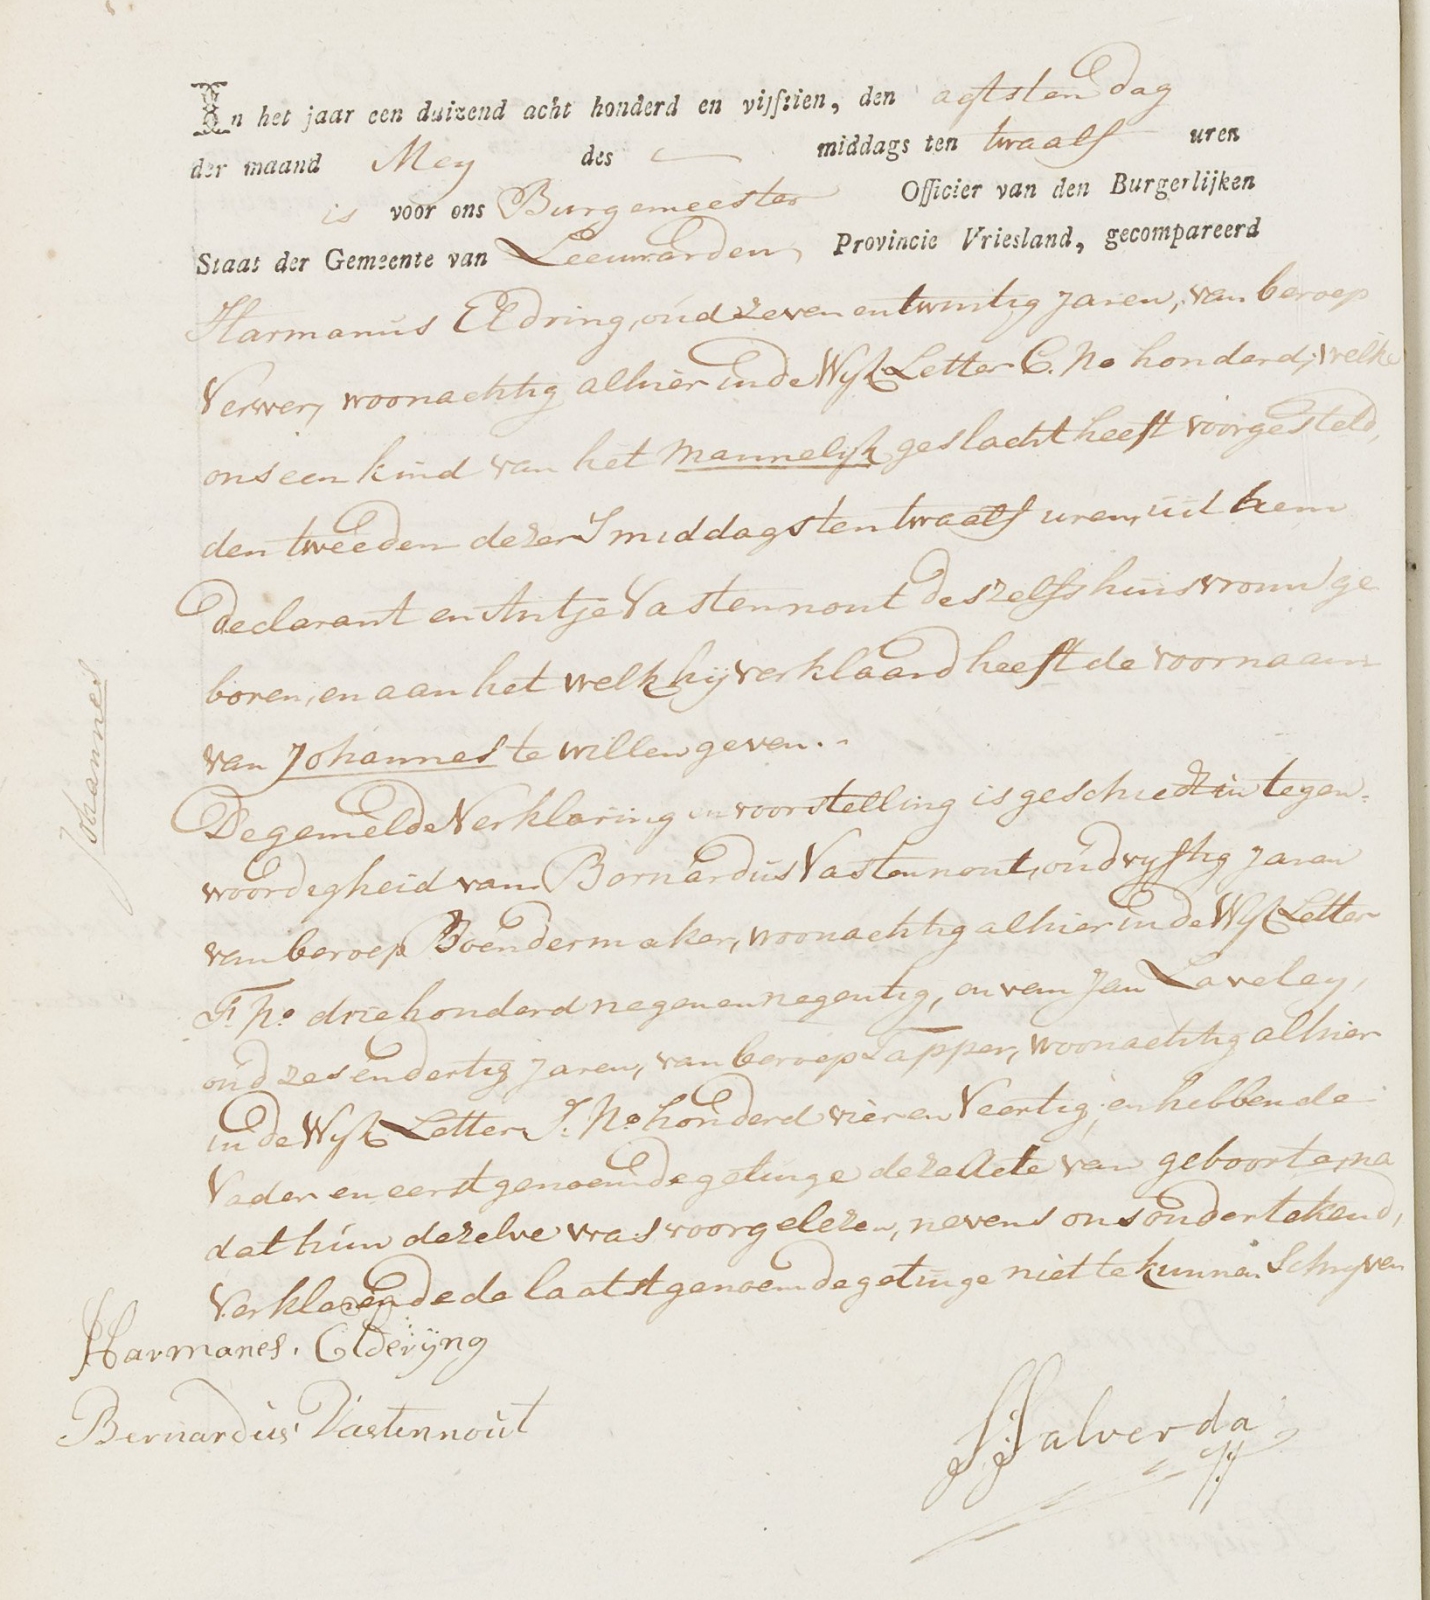 In het jaar een duizend acht honderd en vijftien, den agtsten dag
der maand Mey des middags ten twaalf uren
is voor ons Burgemeester Officier van den Burgerlijken
Staat der Gemeente van Leeuwarden, Provincie Vriesland, gecompareerd
Harmanus Eldring, oud zeven en twintig jaren, van beroep
Verwer, woonachtig alhier in de Wyk Letter C. No honderd, welke
ons een kind van het mannelyk geslacht heeft voorgesteld,
den tweeden dezer S middags ten twaalf uren, uit hem
declarant en Antje Vastennout deszelfs huisvrouw ge
boren, en aan het welk hij verklaard heeft de voornaam
van Johannes te willen geven.
Johannes
De gemelde Verklaring en voorstelling is geschiedt in tegen-
woordigheid van Bernardus Vastennout, oud vyftig jaren
van beroep Boendermaker, woonachtig alhier in de Wyk Letter
F. No driehonderd negen en negentig, en van Jan Laveley,
oud zes en dertig jaren, van beroep Tapper, woonachtig alhier
in de Wyk Letter I. No honderd vier en Veertig, en hebben de
Vader en eerstgenoemde getuige deze Acte van geboorte, na
dat hun dezelve was voorgelezen, nevens ons ondertekend,
Verklarende de laatstgenoemde getuige niet te kunnen Schryven
Harmanes. Elderÿng
Bernardus Vastennout
S Salverda